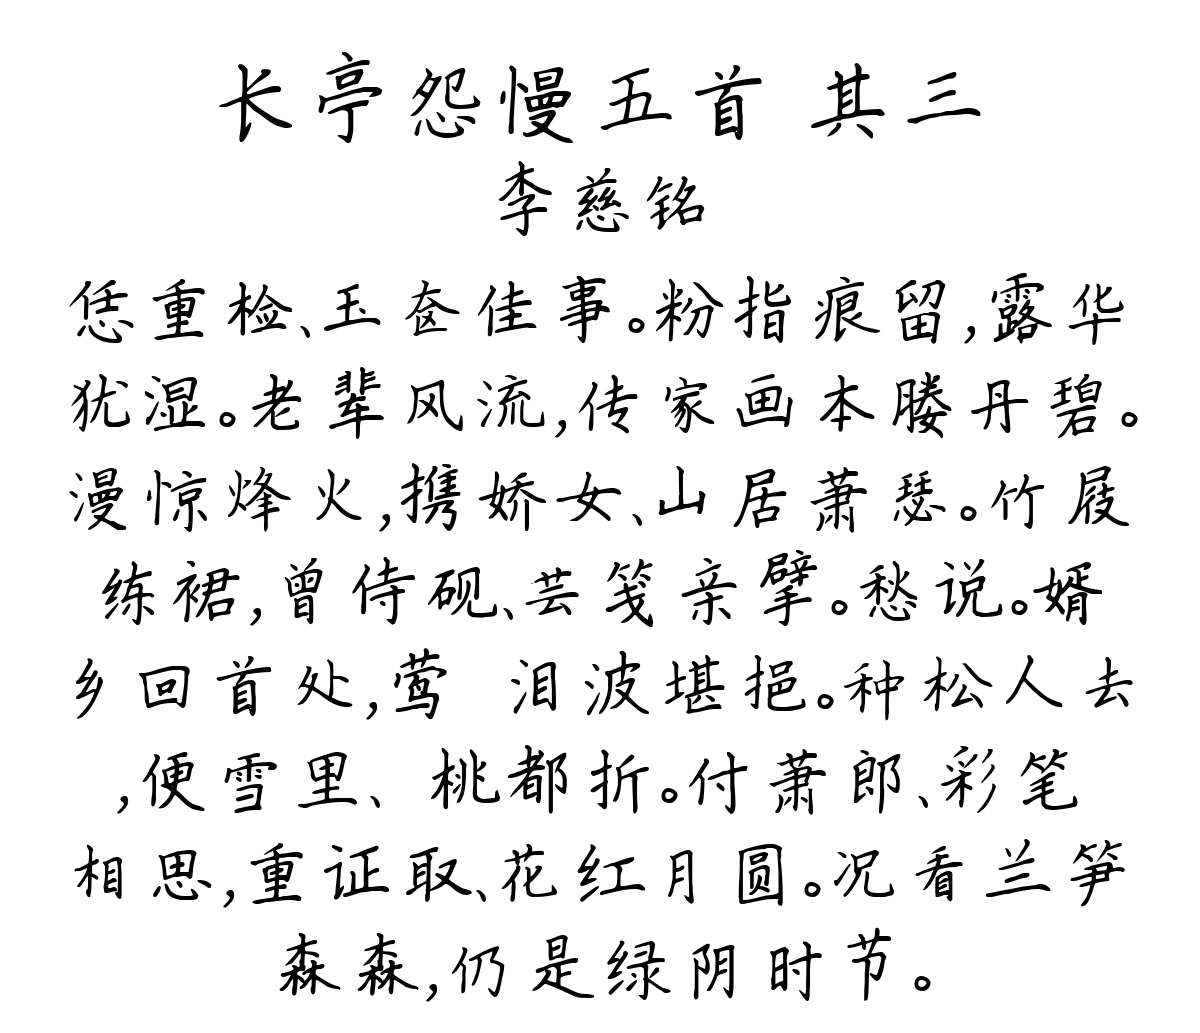 长亭怨慢五首 其三
李慈铭
恁重检、玉奁佳事。粉指痕留,露华
犹湿。老辈风流,传家画本賸丹碧。
漫惊烽火,携娇女、山居萧瑟。竹屐
练裙,曾侍砚、芸笺亲擘。愁说。婿
乡回首处,莺 泪波堪挹。种松人去
,便雪里、 桃都折。付萧郎、彩笔
相思,重证取、花红月圆。况看兰笋
森森,仍是绿阴时节。